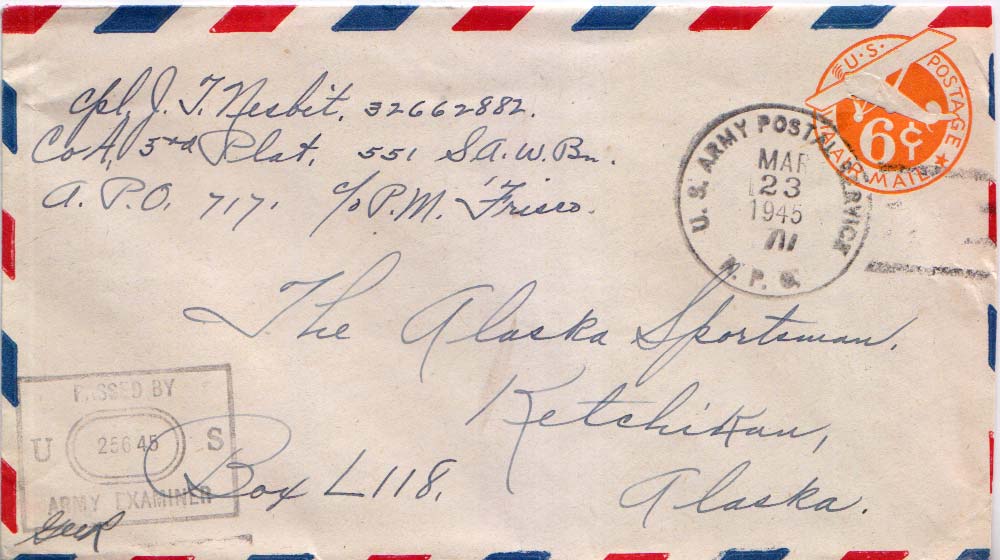 Cpl. J. T. Nesbit, 32662882.
Co A, 3rd Plat, 551 S.A.W. Bn.
A. P.O. 717. c/o P.M. 'Frisco.
U.S. POSTAGE
6¢
VIA AIR MAIL
U. S. ARMY POSTAL SERVICE
MAR
23
1945
A. P. O.
The Alaska Sportsman,
Ketchikan,
Box L118.
Alaska.
PASSED BY
U 25645 S
ARMY EXAMINER